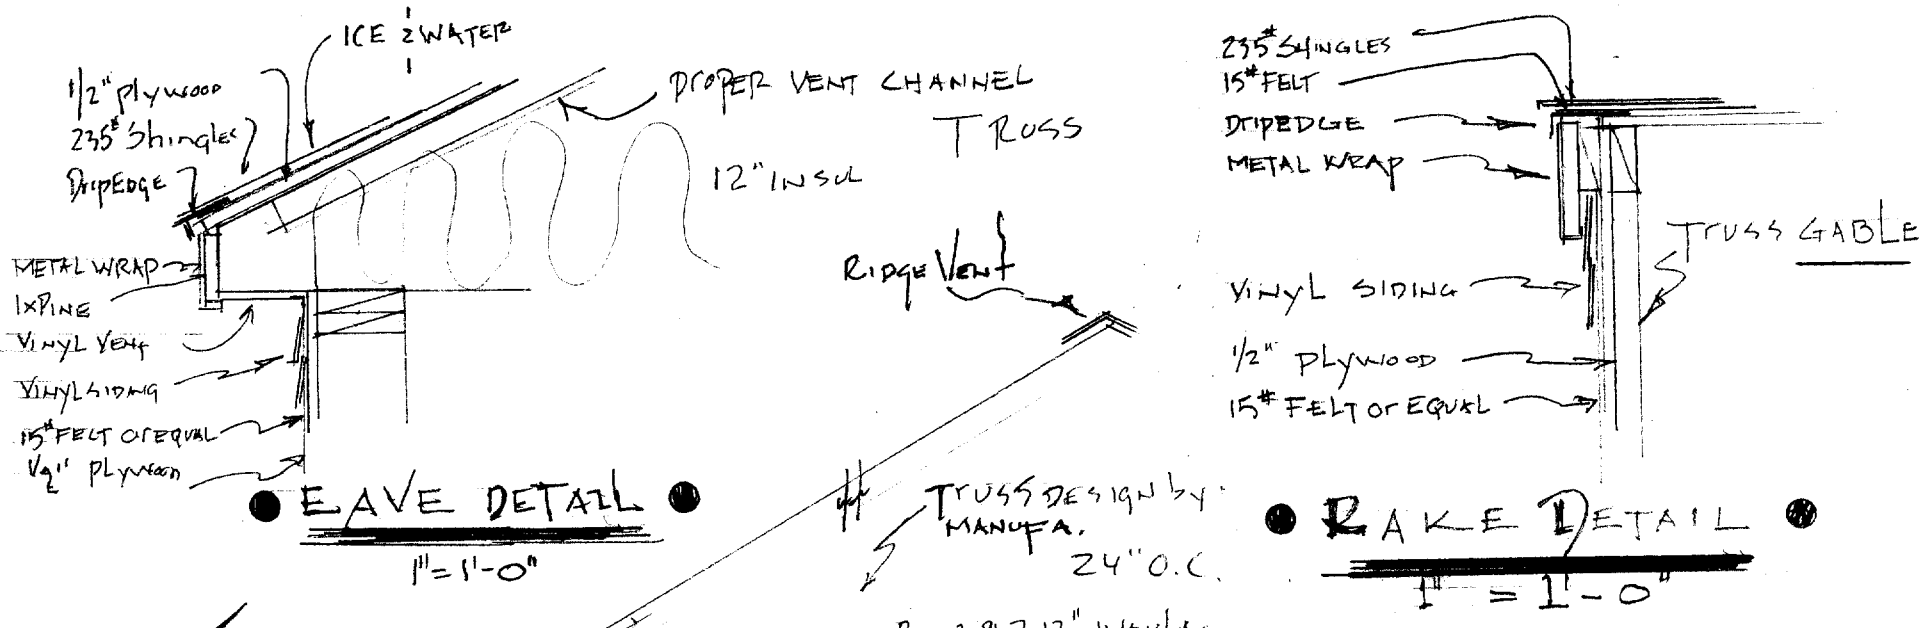 ICE & WATER
1/2" plywood
235# Shingles
DripEdge
PROPER VENT CHANNEL
TRUSS
12" INSUL
METAL WRAP
1xPINE
VINYL VENT
VINYL SIDING
15# FELT Or EQUAL
1/2" PLywood
EAVE DETAIL
1" = 1'-0"
RIDGE VENT
TRUSS DESIGN by
MANUFA.
24" O.C.
12"
235# SHINGLES
15# FELT
DRIPEDGE
METAL WRAP
TRUSS GABLE
VINYL SIDING
1/2" PLYWOOD
15# FELT Or EQUAL
RAKE DETAIL
1" = 1'-0"